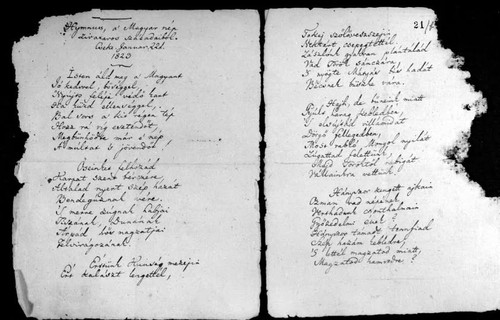 Hymnus, a' Magyar nép
zivataros századaiból.
Cseke Januar. 22d.
1823
Isten áldd meg a' Magyart
Jó kedvvel, bőséggel,
Nyújts feléje védő kart
Ha küzd ellenséggel;
Bal sors a' kit régen tép
Hozz rá víg esztendőt,
Megbűnhödte már e' nép
A' multat 's jövendőt!
Őseinket felhozád
Kárpát szent bérczére,
Általad nyert szép hazát
Bendegúznak vére.
'S merre zúgnak habjai
Tiszának, Dunának,
Árpád hős magzatjai
Felvirágozának.
Értünk Kunság mezején
Ért kalászt lengettél,
21/
Tokaj szőlővesszején
Nektárt csepegtettél.
Zászlónk gyakran plántálád
Vad Török sánczára,
'S nyögte Mátyás bús hadát
Bécsnek büszke vára.
Hajh, de bűneink miatt
Gyúlt harag kebledben,
'S elsújtád villámidat
Dörgő fellegedben,
Most rabló Mongol nyilát
Zúgattad felettünk,
Majd Töröktől rabigát
Vállainkra vettünk.
Hányszor zengett ajkain
Ozman vad népének
Vert hadunk csonthalmain
Győzedelmi ének!
Hányszor támadt tenfiad
Szép hazám kebledre,
'S lettél magzatod miatt
Magzatod hamvvedre?